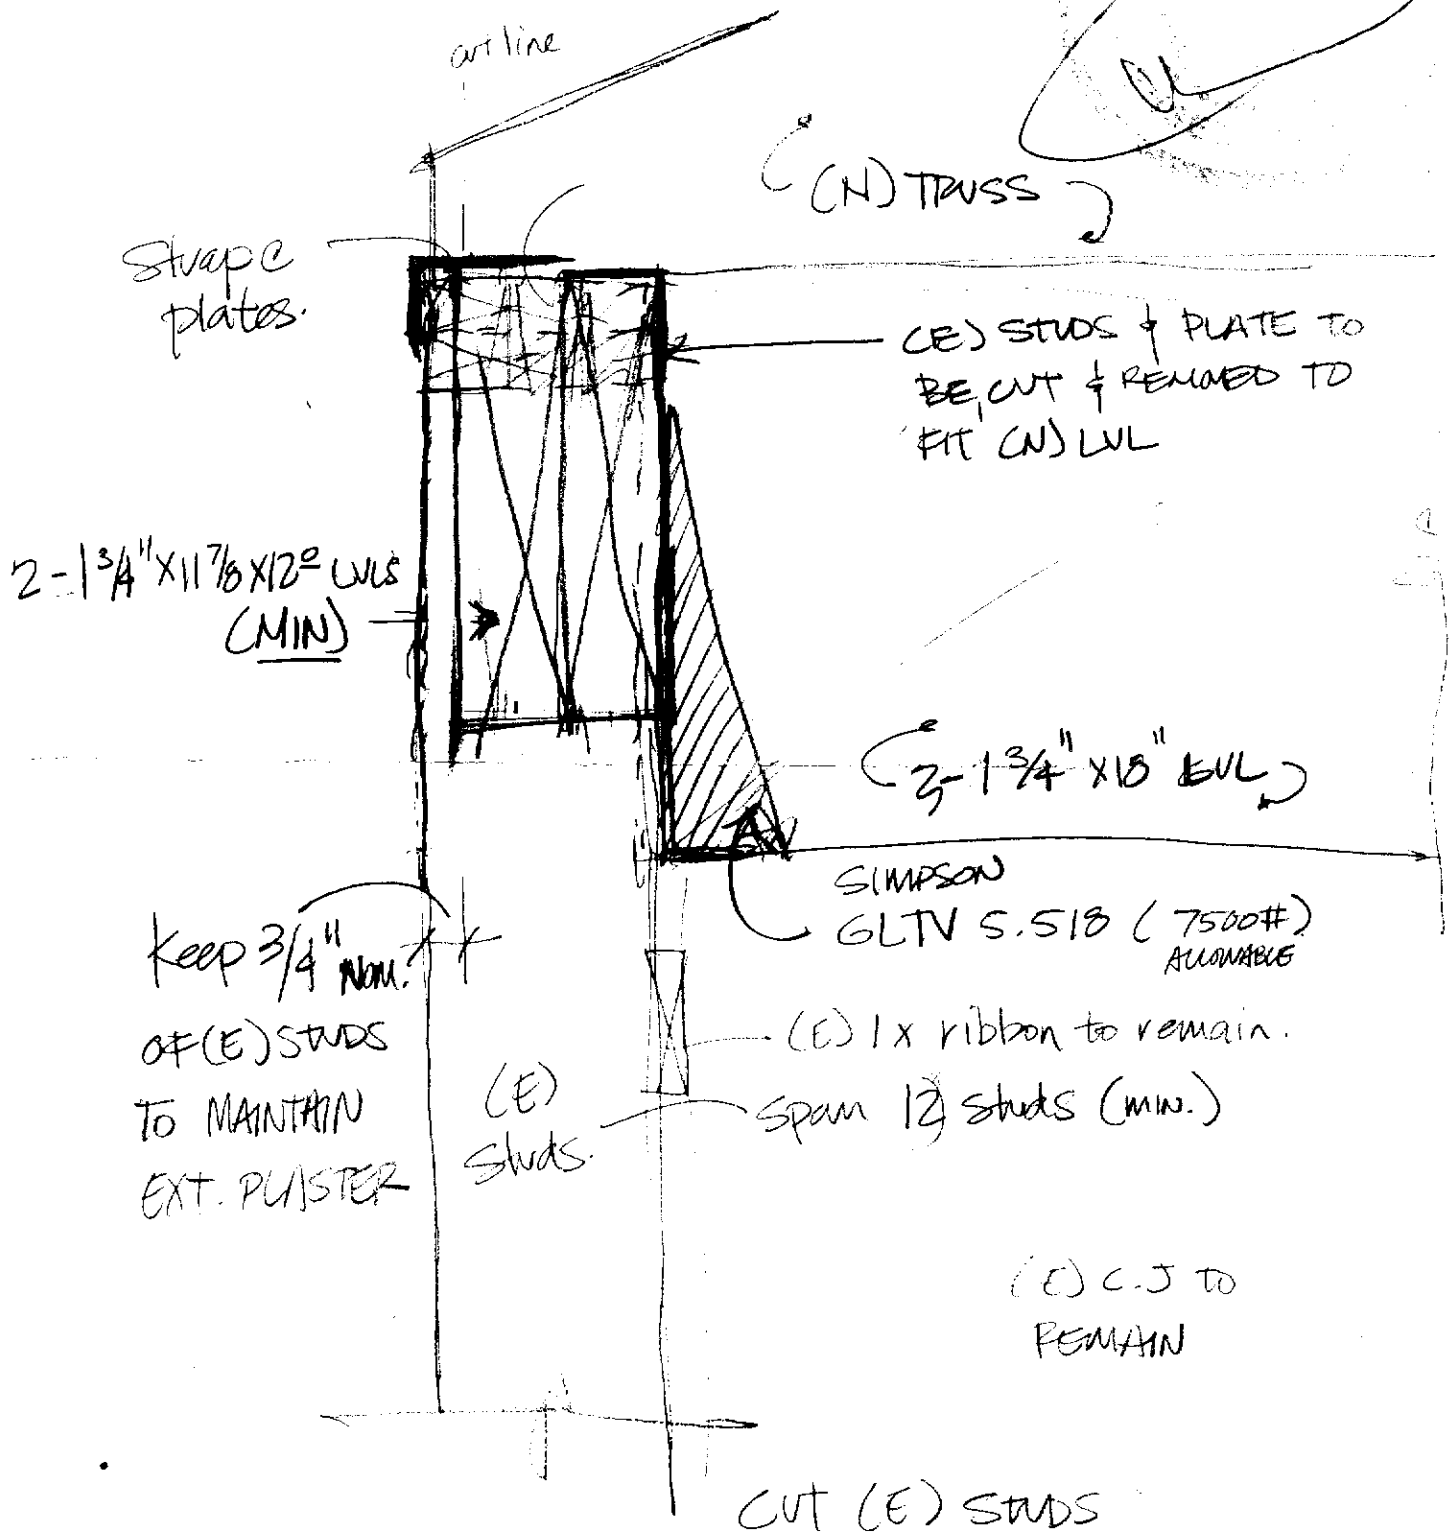 cut line
(N) TRUSS
Strap @
plates.
(E) STUDS & PLATE TO
BE CUT & REMOVED TO
FIT (N) LVL
2-1 3/4" X 11 7/8 X 12º LVLS
(MIN)
1 3/4" X18" LVL
SIMPSON
GLTV 5.518 (7500#)
ALLOWABLE
Keep 3/4" NOM.
OF (E) STUDS
TO MAINTAIN
EXT. PLASTER
(E) 1x ribbon to remain.
(E)
Studs.
Span 12 studs (MIN.)
(E) C.J TO
REMAIN
CUT (E) STUDS